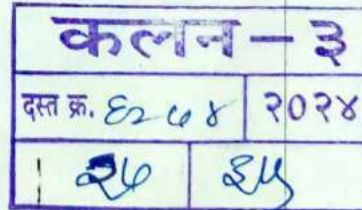 कलन - ३
दस्त क्र. ६२७४ २०२४
२७